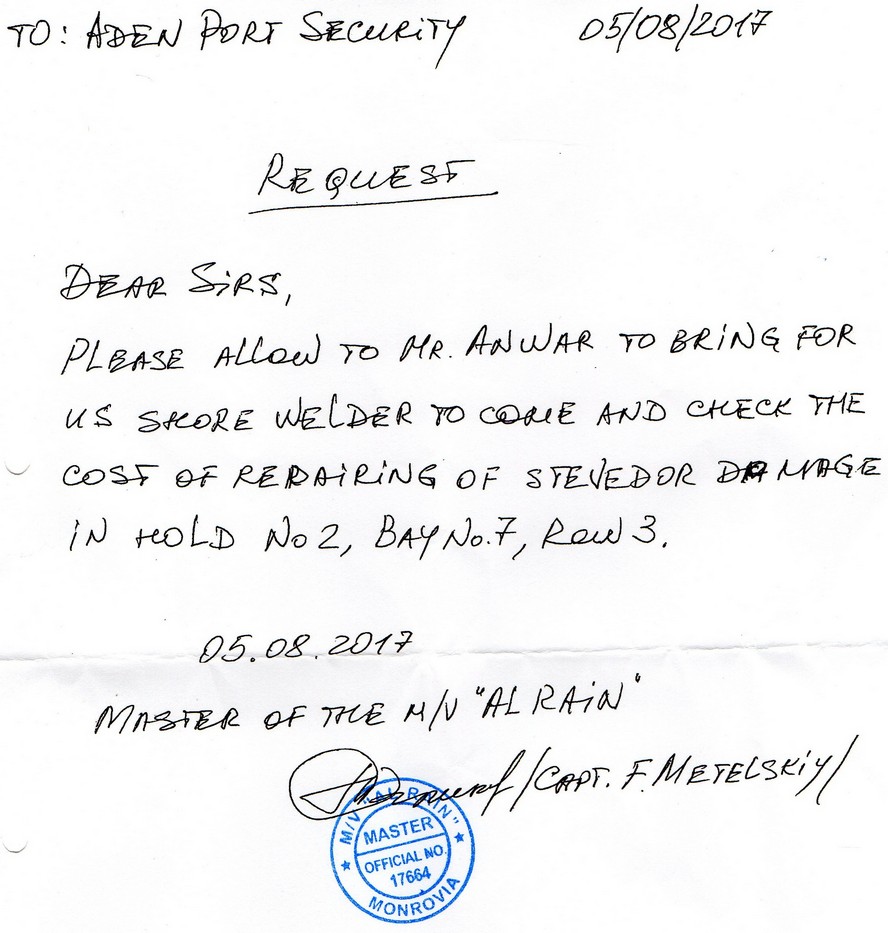 TO: ADEN PORT SECURITY 05/08/2017
REQUEST
DEAR SIRS,
PLEASE ALLOW TO MR. ANWAR TO BRING FOR
US SHORE WELDER TO COME AND CHECK THE
COST OF REPAIRING OF STEVEDOR DAMAGE
IN HOLD No 2, BAY No.7, ROW 3.
05.08.2017
MASTER OF THE M/V "AL RAIN"
/CAPT. F. METELSKIY/
M/V "AL RAIN"
MASTER
OFFICIAL NO.
17664
MONROVIA